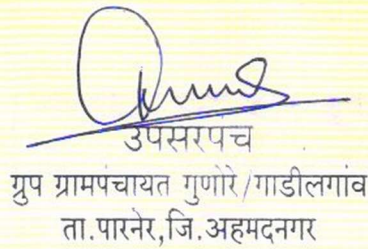 उपसरपंच
ग्रुप ग्रामपंचायत गुणोरे/गाडीलगांव
ता.पारनेर,जि.अहमदनगर